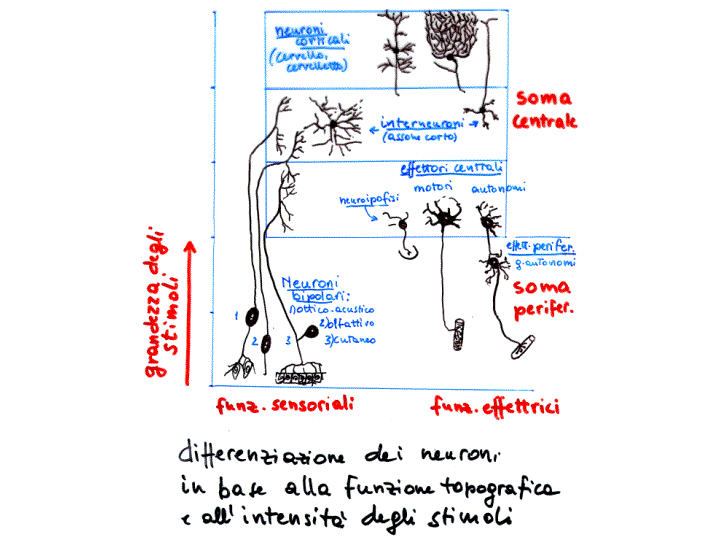 neuroni
corticali
(cervello,
cervelletto)
soma
centrale
interneuroni
(assone corto)
effettori centrali
motori autonomi
neuroipofisi
effett. perifer.
g. autonomi
soma
perifer.
grandezza degli
stimoli
Neuroni
bipolari:
1) ottico-acustico
2) olfattivo
3) cutaneo
1
2
3
funz. sensoriali
funz. effettrici
differenziazione dei neuroni
in base alla funzione topografica
e all'intensità degli stimoli